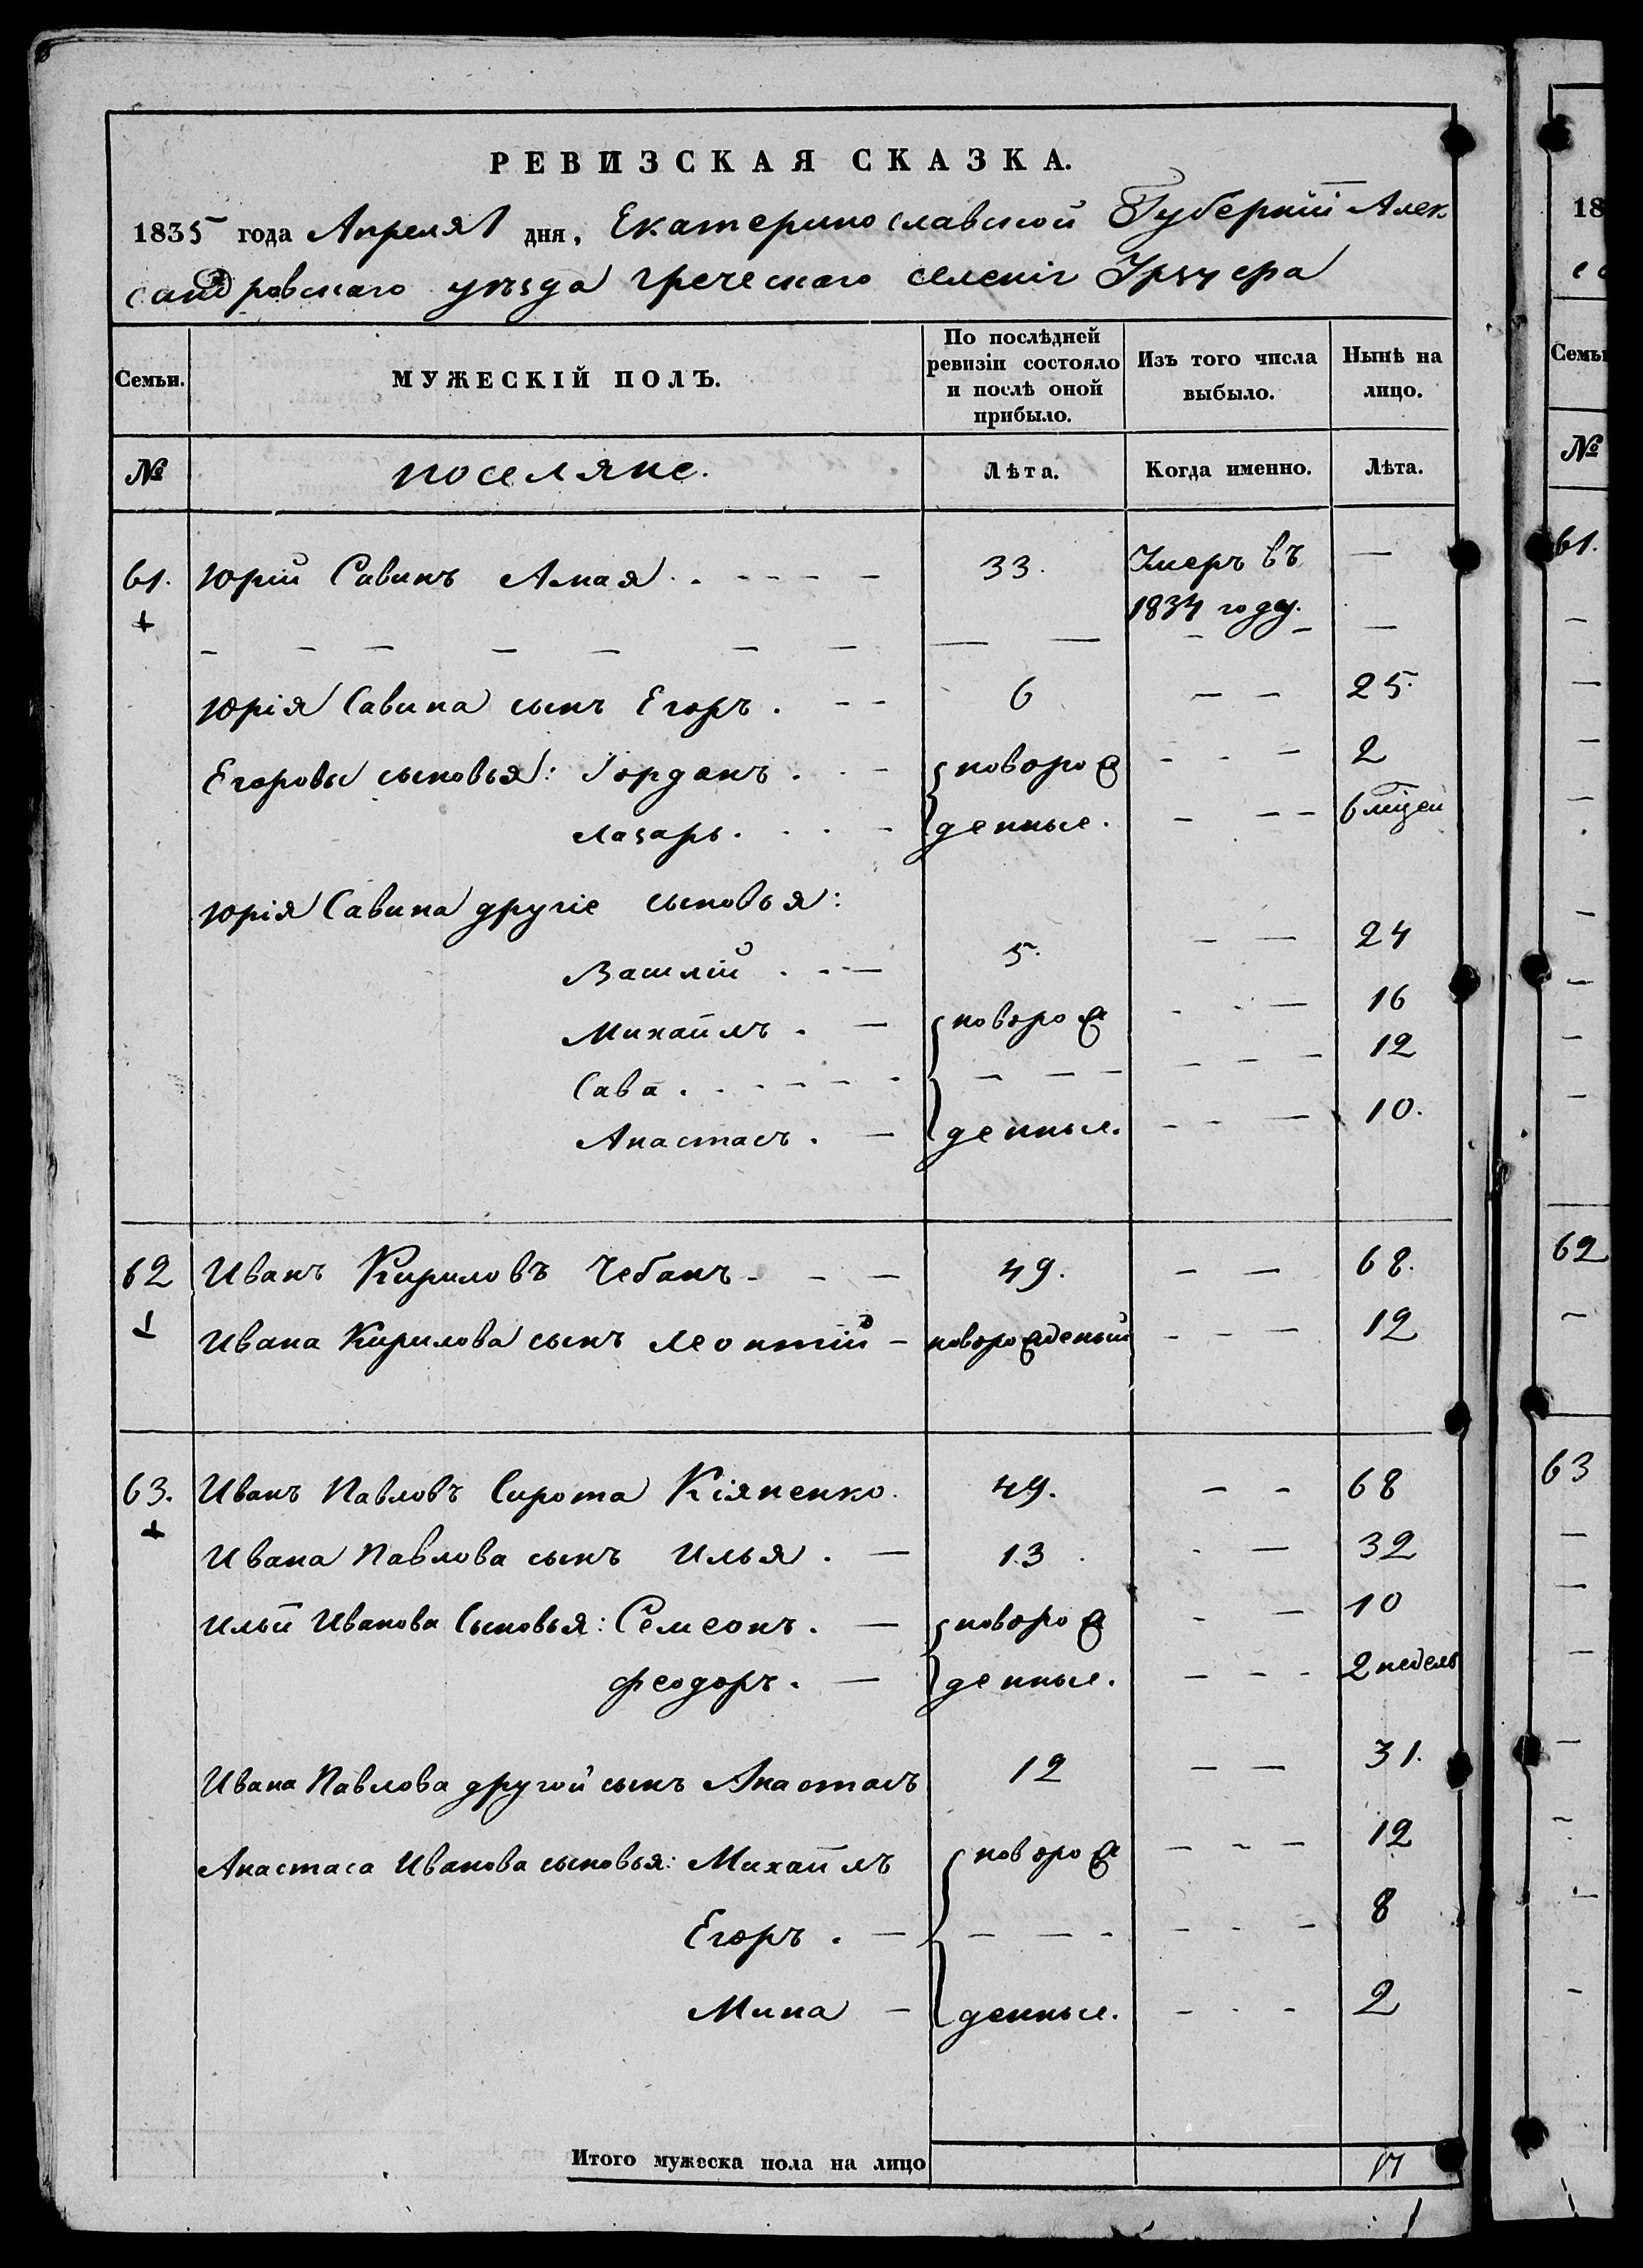 РЕВИЗСКАЯ СКАЗКА.
1835 года Апреля 1 дня, Екатеринославской Губернїи Алек
сандровскаго уѣзда греческаго селенія Урзуфа
Семьи. МУЖЕСКІЙ ПОЛЪ. По послѣдней ревизіи состояло и послѣ оной прибыло. Изъ того числа выбыло. Нынѣ на лицо.
№ поселяне. Лѣта. Когда именно. Лѣта.
61. Юрій Савинъ Амая. 33. Умеръ въ —
1834 году.
Юрія Савина сынъ Егоръ. 6 — 25.
Егоровы сыновья: Іорданъ. новорож — 2
Лазарь. денные. — 6 мцей
Юрія Савина другіе сыновья:
Василій 5. — 24
Михаилъ. новорож — 16
Сава. — 12
Анастасъ. денные. — 10.
62 Иванъ Кириловъ Чебанъ 49. — 68.
Ивана Кирилова сынъ Леонтій новорожденый — 12
63. Иванъ Павловъ Сирота Кіяненко. 49. — 68
Ивана Павлова сынъ Илья. 13 — 32
Ильи Иванова Сыновья: Семеонъ. новорож — 10
Феодоръ. денные. — 2 недель
Ивана Павлова другой сынъ Анастасъ 12 — 31.
Анастаса Иванова сыновья: Михаилъ новорож — 12
Егоръ. — 8
Мина денные. — 2
Итого мужеска пола на лицо 17
18
Семьи
№
61.
62
63